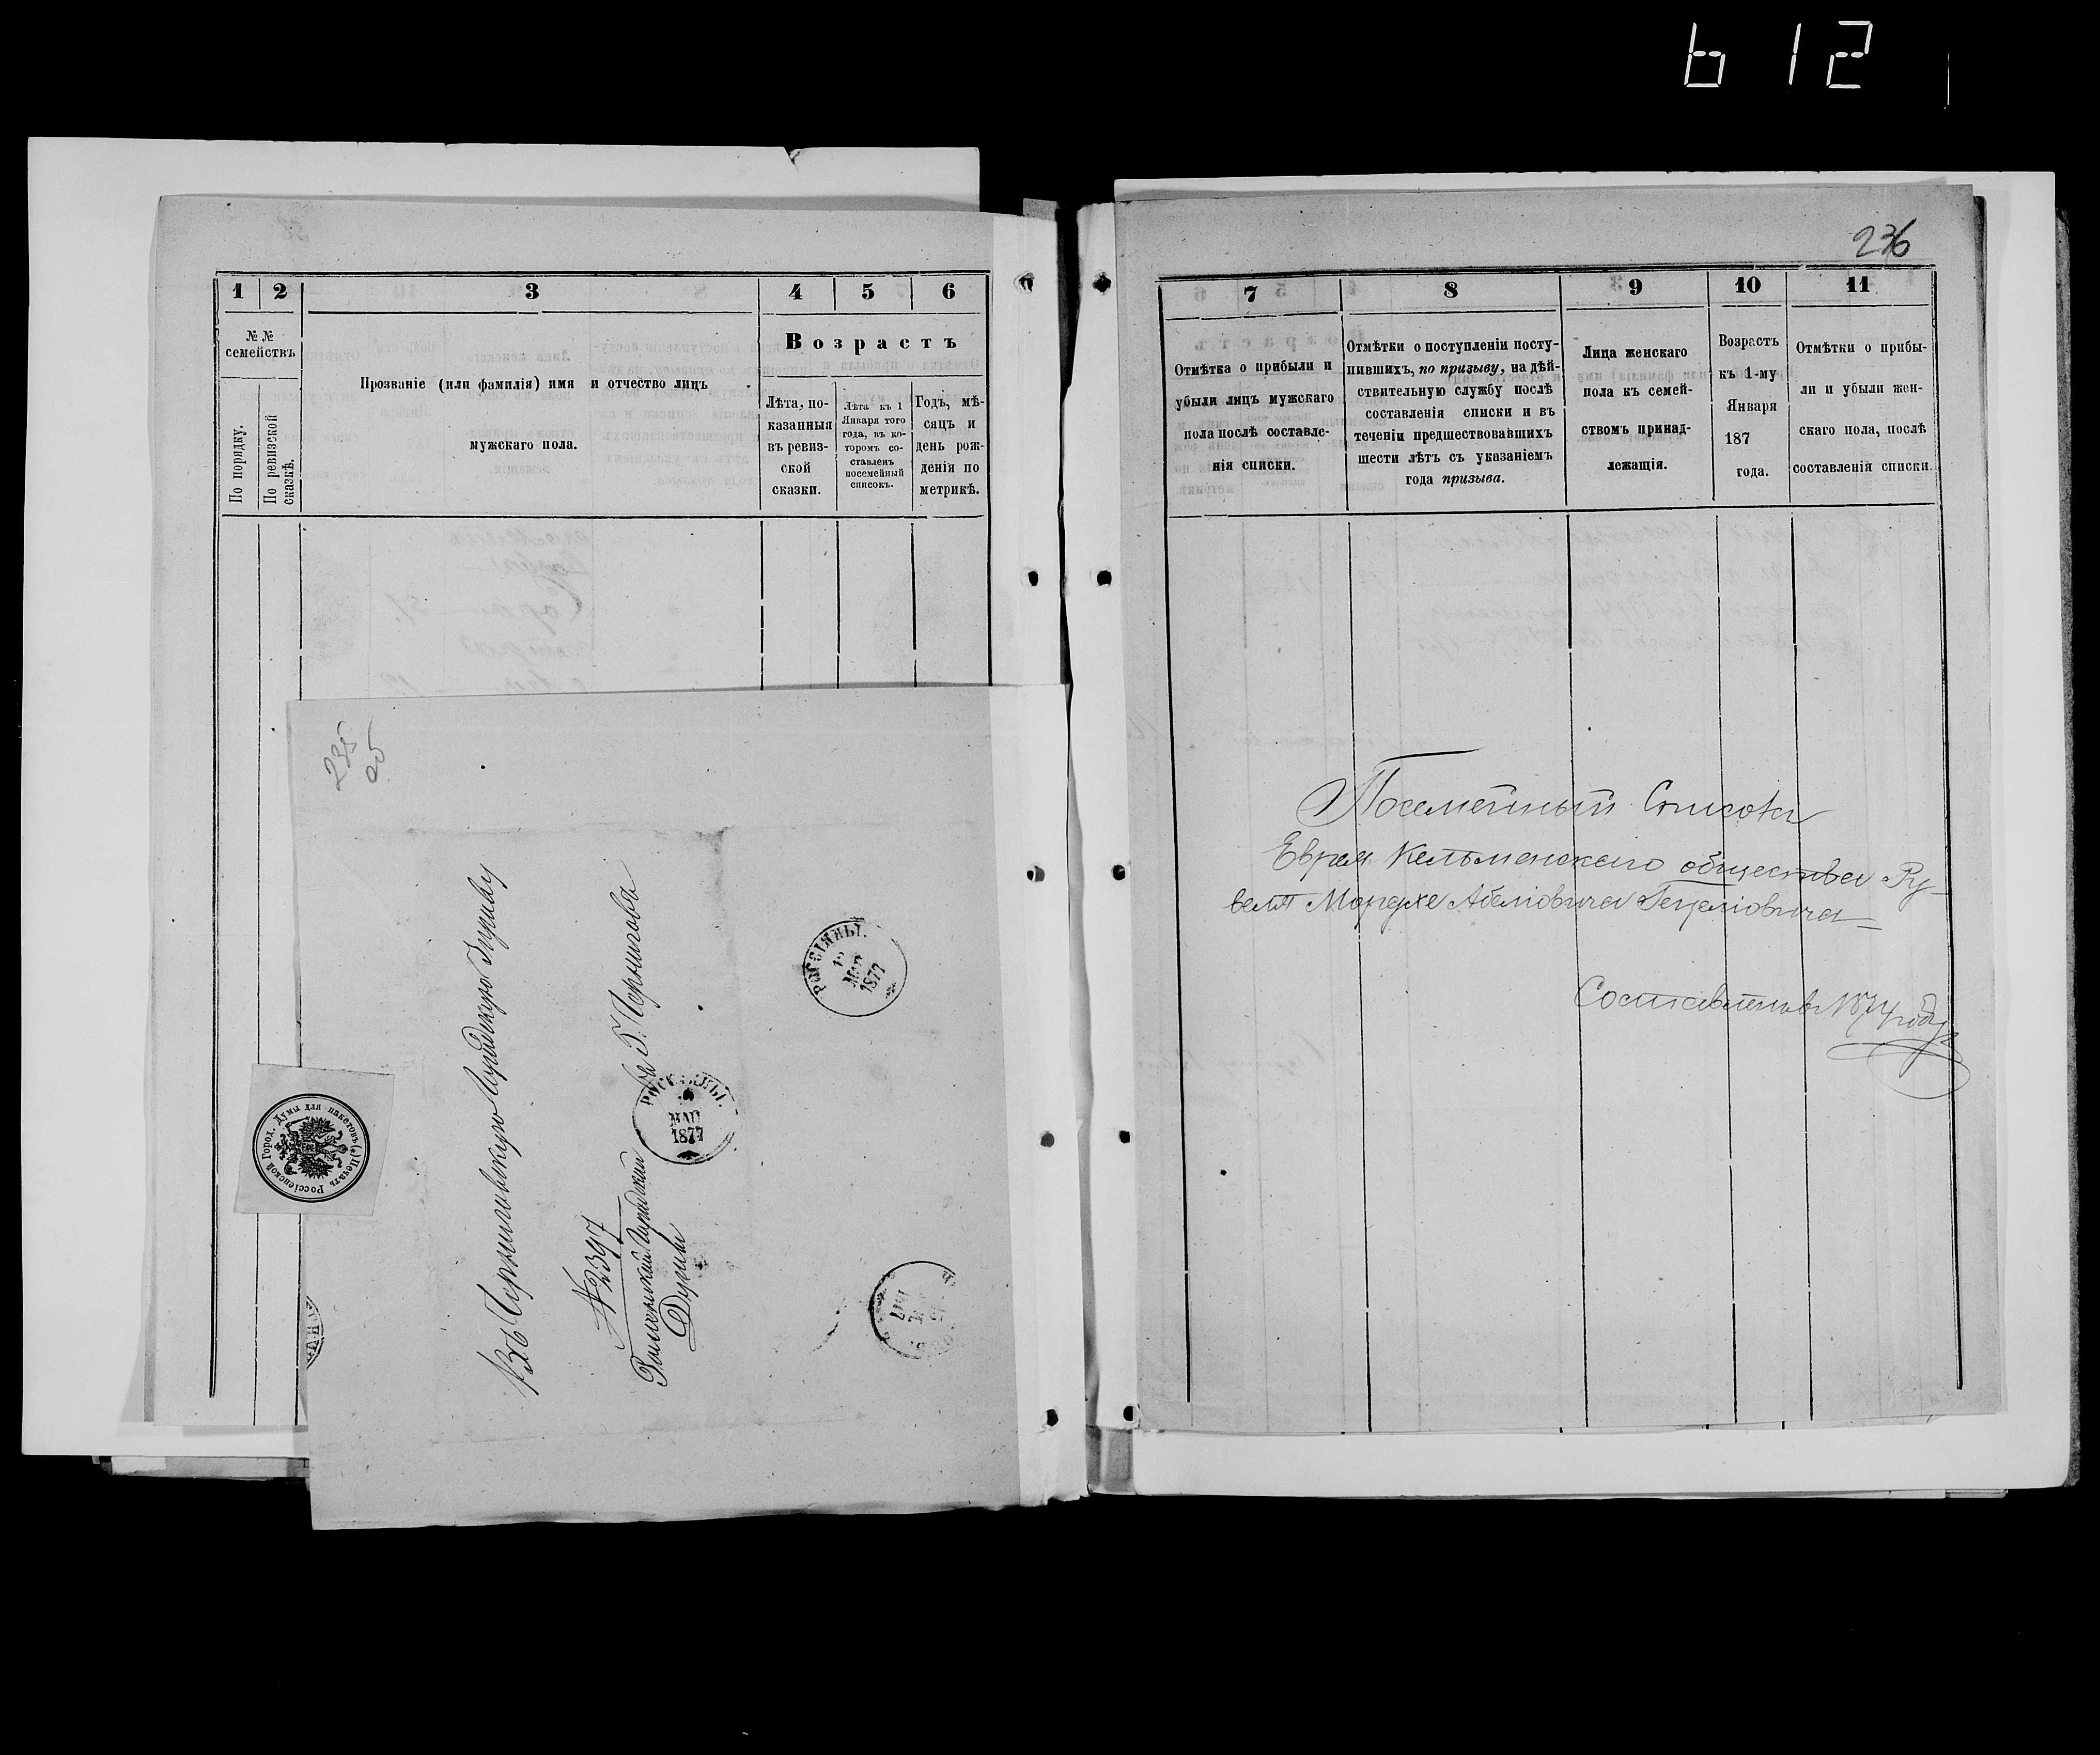 612
1
2
3
4
5
6
№ №
семействъ
По порядку.
По ревизской
сказкѣ.
Прозваніе (или фамилія) имя и отчество лицъ
мужскаго пола.
Возрастъ
Лѣта, по-
казанныя
въ ревиз-
ской
сказки.
Лѣта къ 1
Января того
года, въ ко-
торомъ со-
ставленъ
посемейный
списокъ.
Годъ, мѣ-
сяцъ и
день рож-
денія по
метрикѣ.
235
об
Въ Черниговскую Городскую Управу
въ Г. Черниговъ
№ 2397
Россіенской Городской
Думы
РОССІЯНЫ.
МАР
1877
РОССІЯНЫ.
МАР
1877
Печать Россіенской Город. Думы для пакетовъ
236
7
8
9
10
11
Отмѣтка о прибыли и
убыли лицъ мужскаго
пола послѣ составле-
нія списки.
Отмѣтки о поступленіи посту-
пившихъ, по призыву, на дѣй-
ствительную службу послѣ
составленія списки и въ
теченіи предшествовавшихъ
шести лѣтъ съ указаніемъ
года призыва.
Лица женскаго
пола къ семей-
ствомъ принад-
лежащія.
Возрастъ
къ 1-му
Января
187
года.
Отмѣтки о прибы-
ли и убыли жен-
скаго пола, послѣ
составленія списки.
Посемейный Списокъ
Еврея Кельменскаго общества Ру-
веля Мордхе Абеліовича Гецеліовича
Составленъ въ 1874 году